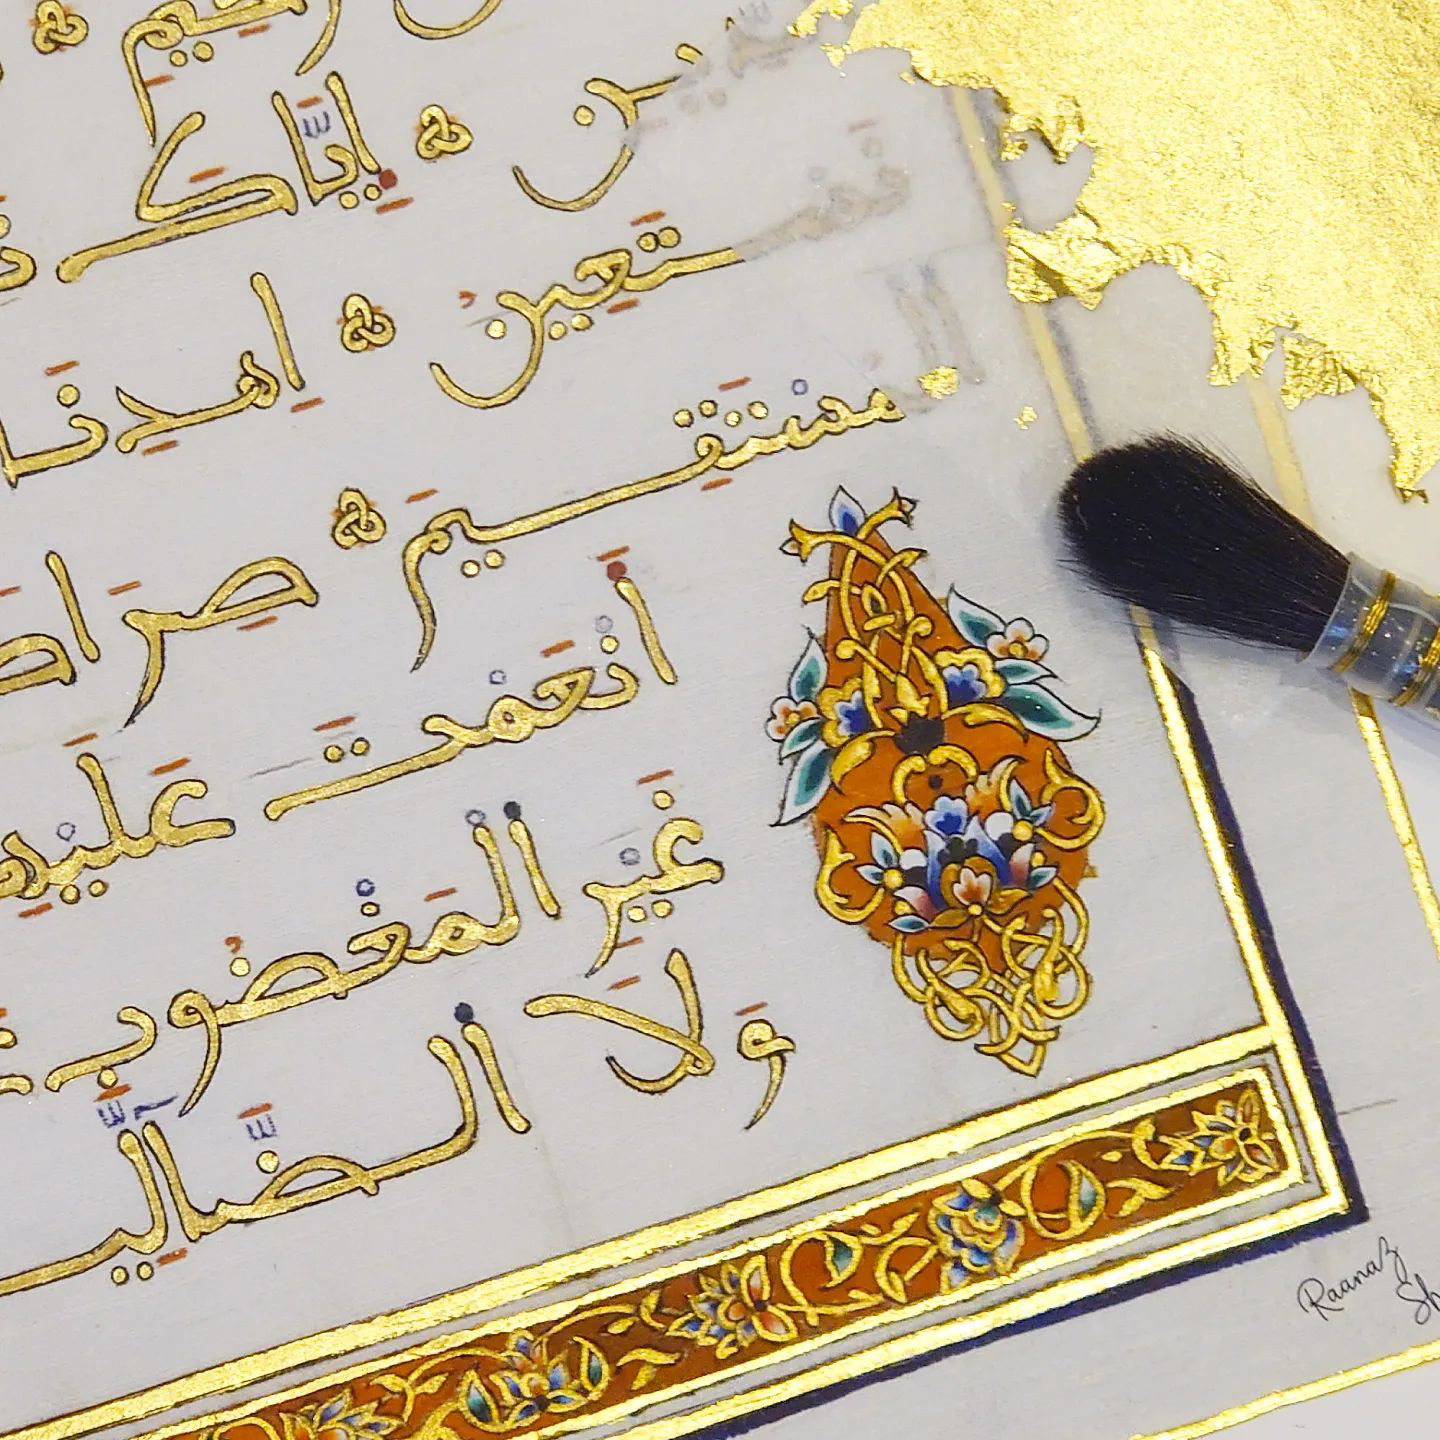 حِيمِ
ينِ إِيَّاكَ
نَسْتَعِينُ اِهْدِنَا
الْمُسْتَقِيمَ صِرَاطَ
أَنْعَمْتَ عَلَيْهِ
غَيْرِ الْمَغْضُوبِ
وَلَا الضَّآلِّي
Raanaz
Sh